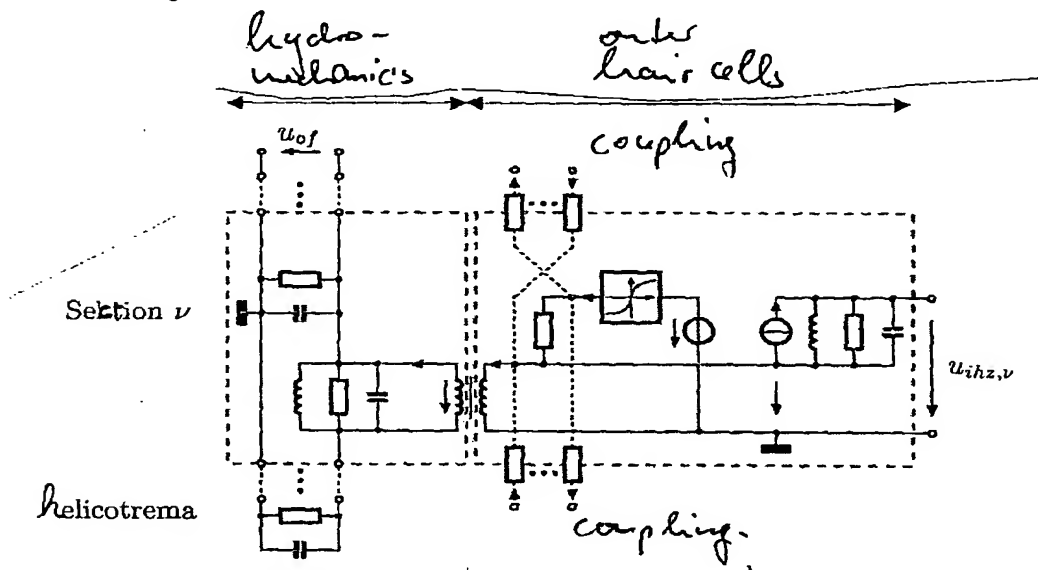 hydro-
mechanics
outer
hair cells
coupling
u_of
Sektion ν
u_ihz,ν
helicotrema
coupling.